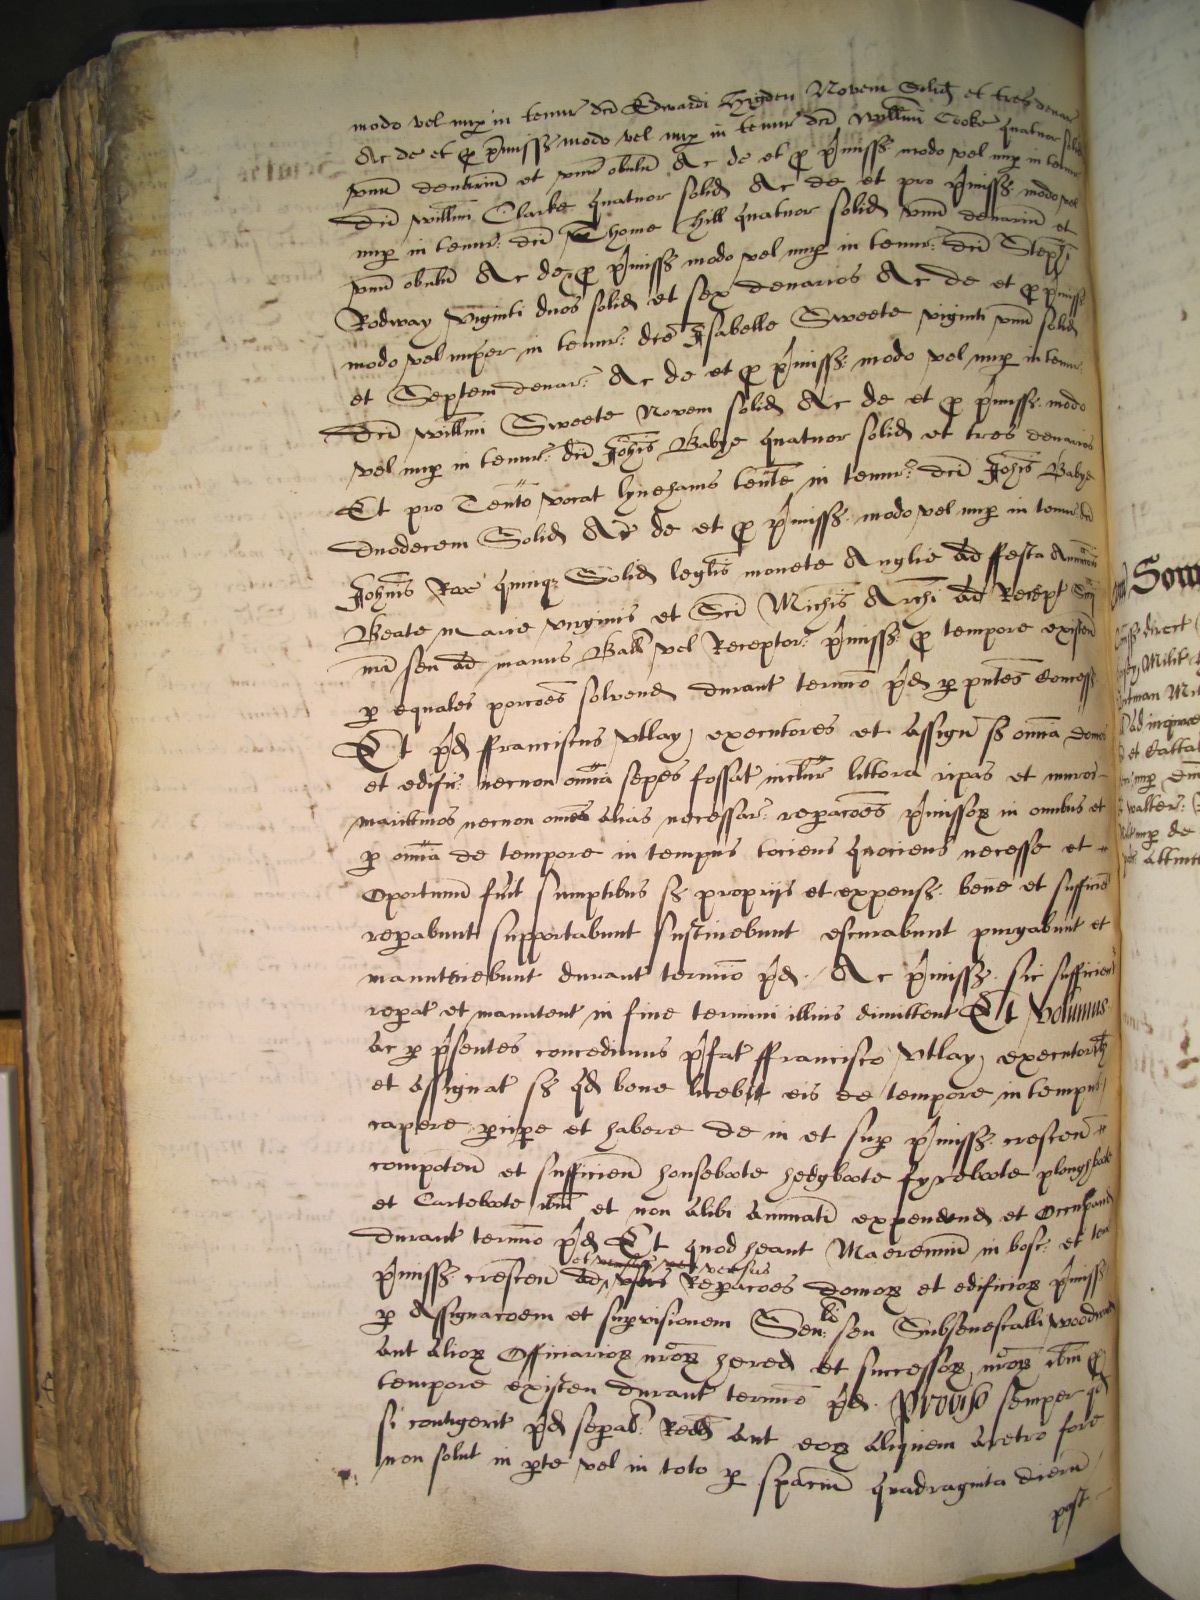 modo vel nup in tenur dci Edwardi Higden Novem Solid et tres denar
Ac de et p pmiss modo vel nup in tenur dci Willmi Cooke quatuor solid
unu denariu et unu obulu Ac de et p pmiss modo vel nup in tenur
dci Willmi Clarke quatuor solid Ac de et pro pmiss modo vel
nup in tenur dci Thome Hill quatuor solid unu denariu et
unu obulu Ac de p pmiss modo vel nup in tenur dci Stephi
Rodway viginti duos solid et sex denarios Ac de et p pmiss
modo vel nuper in tenur dce Isabelle Sweete viginti unu solid
et Septem denar Ac de et p pmiss modo vel nup in tenur
dci Willmi Sweete Novem solid Ac de et p pmiss modo
vel nup in tenur dci Johis Babye quatuor solid et tres denarios
Et pro Tento vocat lynehams tente in tenur dci Johis Babye
duodecem Solid Ac de et p pmiss modo vel nup in tenur dci
Johnis Roo quinq Solid leglis monete Anglie ad festa Annunc
Beate marie virginis et Sci Michis Archi ad Recept Scij
nri seu ad manus Ball vel Receptor pmiss p tempore existen
p equales porcoes solvend durant termio pd p pntes concess
Et pd ffranciscus Utlay executores et assign s omia domos
et edific necnon omia sepes fossat inclur littora ripas et muros
maritimos necnon omes alias necessar repacoes pmissor in omibus et
p omia de tempore in tempus tociens quociens necesse et
oportunu fuit sumptibus s proprijs et expens bene et sufficie
repabunt supportabunt sustinebunt escurabunt purgabunt et
manutenebunt durant termio pd Ac pmiss sic sufficien
repat et manutent in fine termini illius dimittent Et Volumus
ac p psentes concedimus pfat ffrancisco Utlay executorib
et assignat s qd bene licebit eis de tempore in tempus
capere pcipe et habere de in et sup pmiss crescen
competen et sufficien houseboote hedgboote fyreboote ploughboote
et Carteboote ibm et non alibi annuati expendend et Occupand
durant termio pd Et quod heant Maeremiu in bosc et terr
pmiss crescen ad et versus Repacoes domor et edificior pmiss
p Assignacoem et supvisionem Senlli seu Subsenescalli woodward
aut alior Officiarior nror hered et successor nror ibm p
tempore existen durant termio pd Proviso semper qd
si contigerit pd sepal Redd aut eor aliquem aretro fore
non solut in pte vel in toto p spaciu quadraginta dieru
post
Som